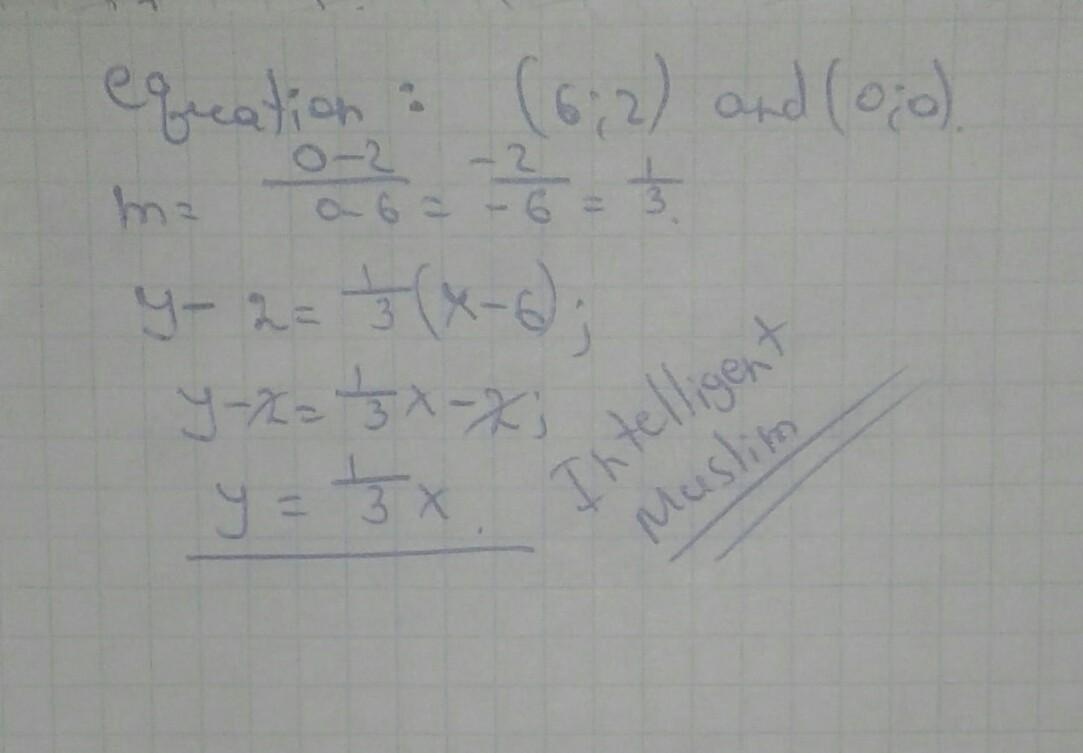 equation : (6;2) and (0;0).
m= 0-2/0-6 = -2/-6 = 1/3.
y- 2= 1/3(x-6);
y-2= 1/3x-2;
y = 1/3x.
Intelligent
Muslim